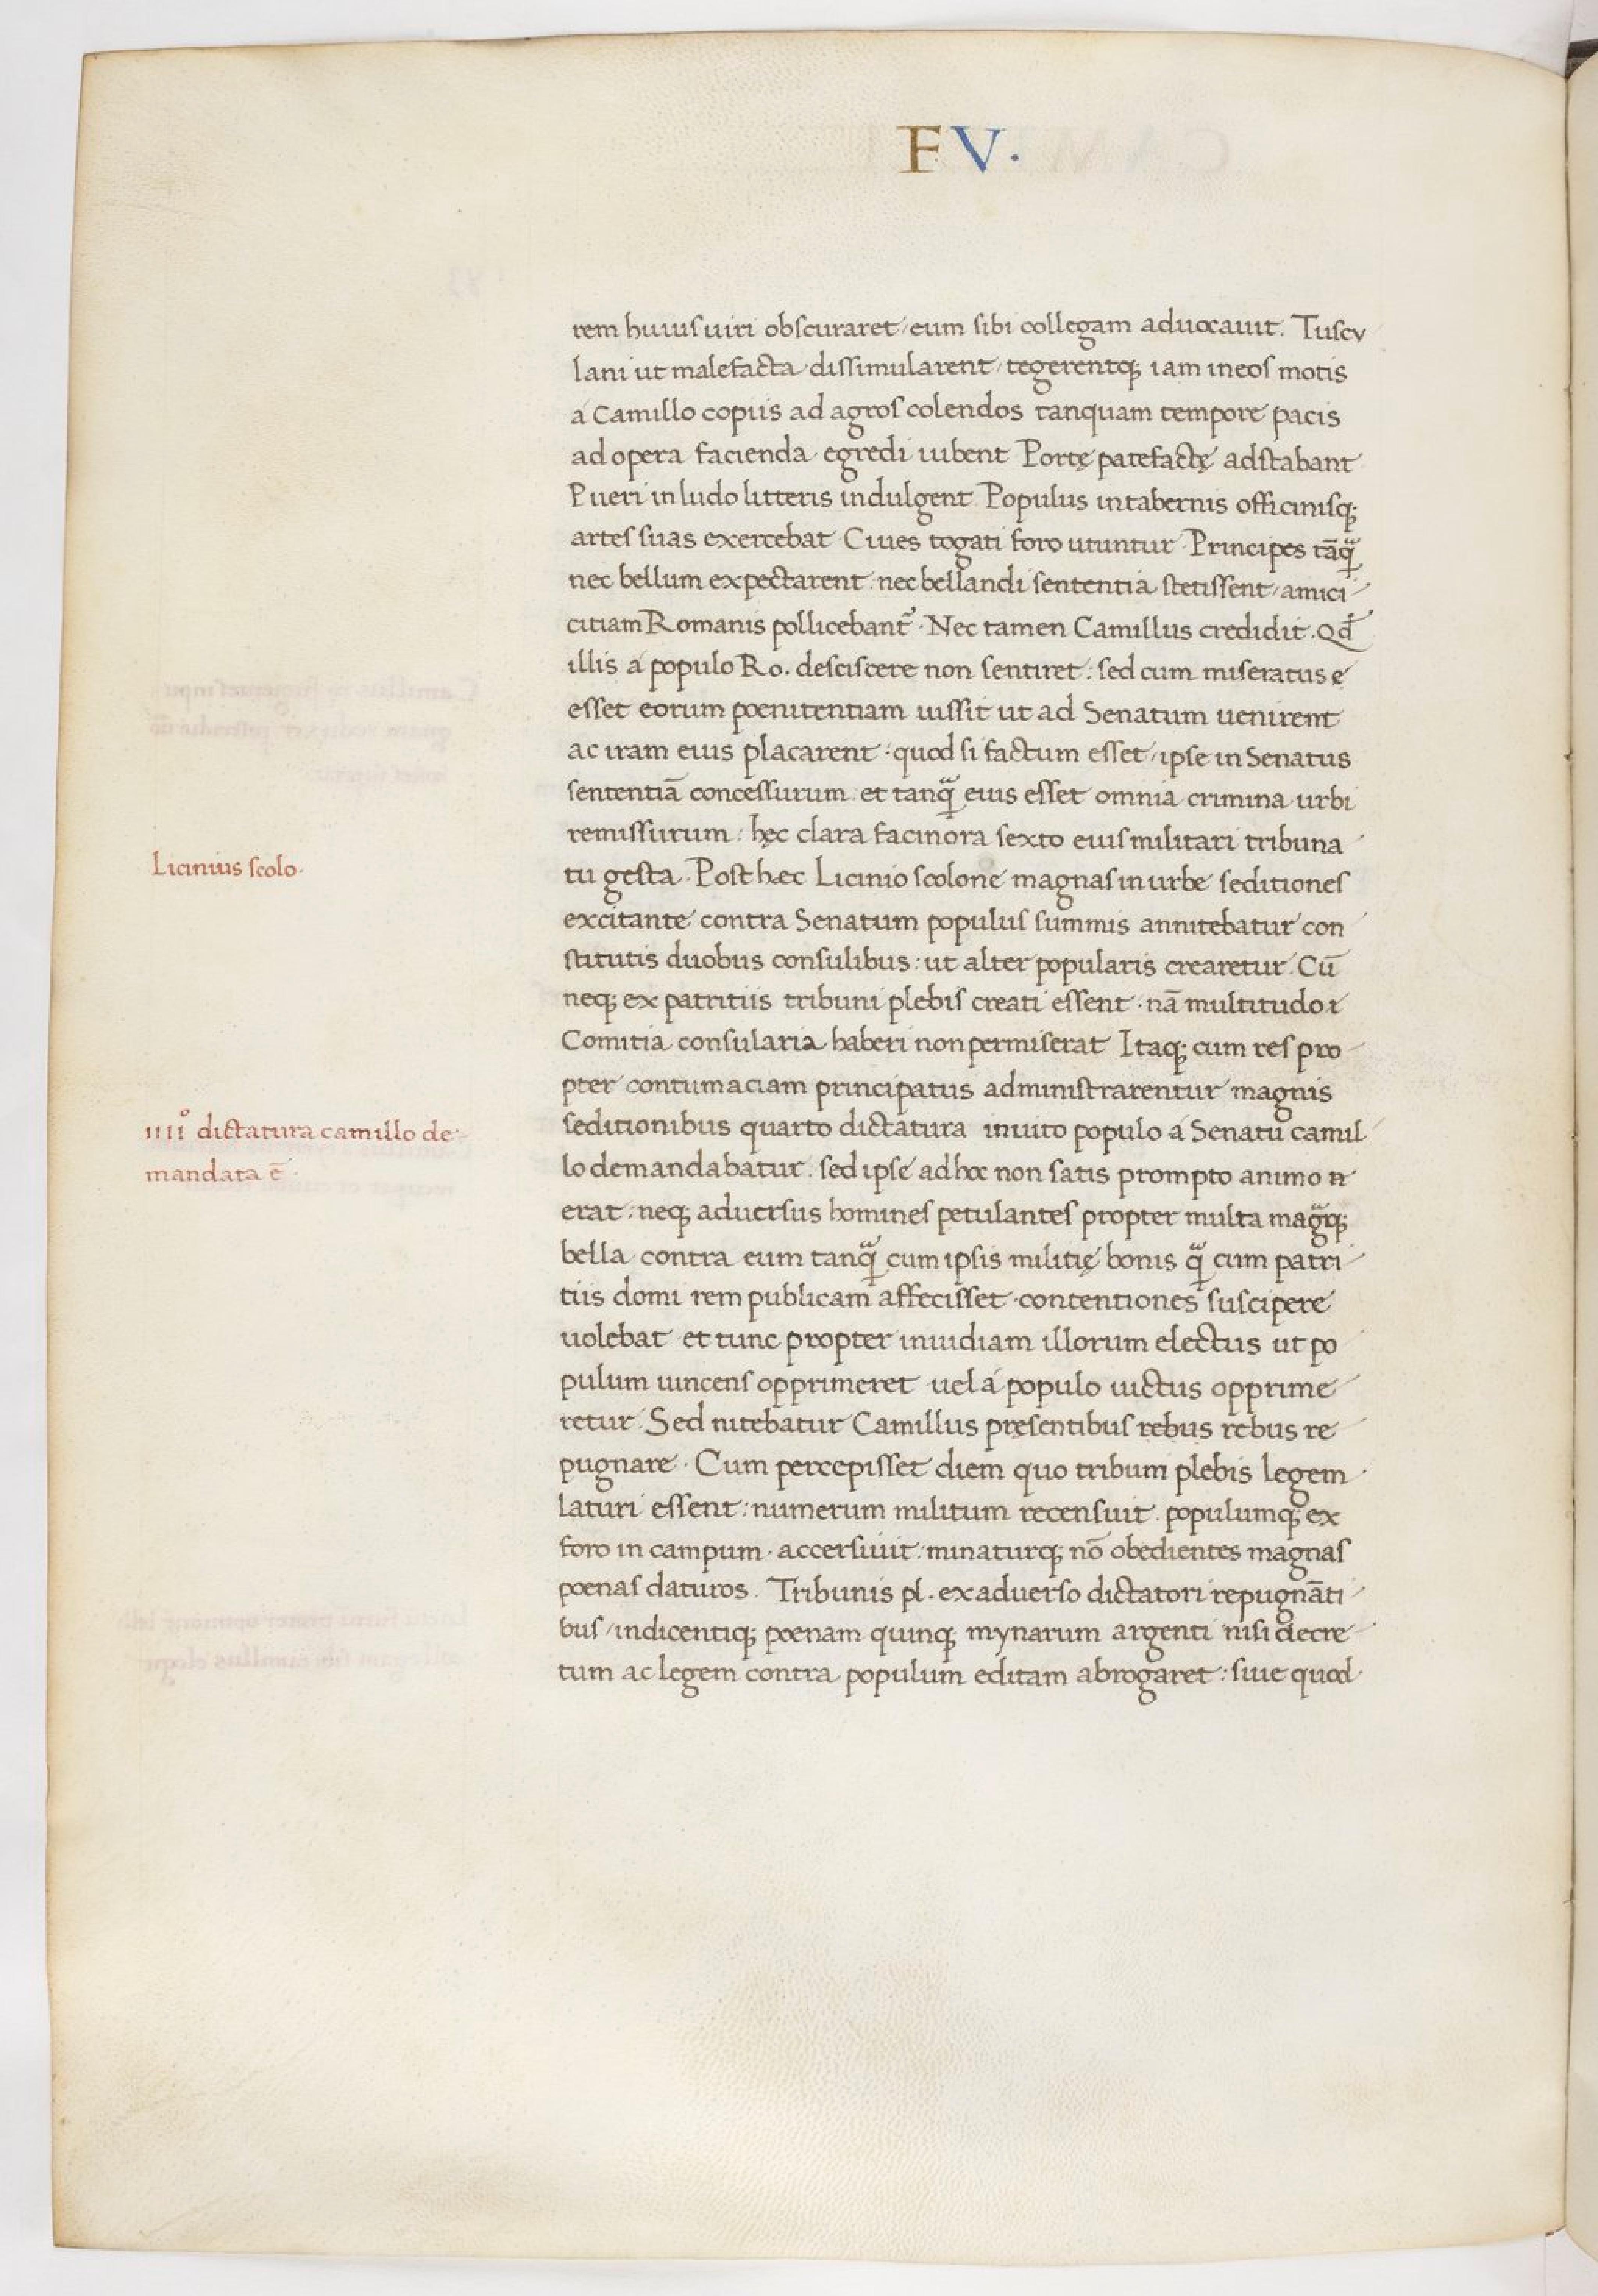 FV.
rem huius uiri obscuraret, eum sibi collegam aduocauit. Tuscu
lani ut malefacta dissimularent, tegerentq; iam in eos motis
á Camillo copiis ad agros colendos tanquam tempore pacis
ad opera facienda egredi iubent Portę patefactę adstabant
Pueri in ludo litteris indulgent Populus in tabernis officinisq;
artes suas exercebat Ciues togati foro utuntur Principes tāq̃
nec bellum expectarent: nec bellandi sententia stetissent, amici
citiam Romanis pollicebant᷑. Nec tamen Camillus credidit. Qđ
illis á populo Ro. desciscere non sentiret: sed cum miseratus e
esset eorum poenitentiam iussit ut ad Senatum uenirent
ac iram eius placarent: quod si factum esset, ipse in Senatus
sententiā concessurum: et tanq̃ eius esset omnia crimina urbi
remissurum: hęc clara facinora sexto eius militari tribuna
Licinius scolo.
tu gesta. Post hæc Licinio scolone magnas in urbe seditiones
excitante contra Senatum populus summis annitebatur con
stitutis duobus consulibus: ut alter popularis crearetur. Cū
neq; ex patritiis tribuni plebis creati essent. nā multitudo i
Comitia consularia haberi non permiserat Itaq; cum res pro
pter contumaciam principatus administrarentur magnis
IIIIº dictatura camillo de-
mandata ē.
seditionibus quarto dictatura inuito populo á Senatu camil
lo demandabatur. sed ipse ad hoc non satis prompto animo n
erat: neq; aduersus homines petulantes propter multa magq̃;
bella contra eum tanq̃ cum ipsis militię bonis q̃ cum patri
tiis domi rem publicam affecisset contentiones suscipere
uolebat et tunc propter inuidiam illorum electus ut po
pulum uincens opprimeret uel á populo uictus opprime
retur. Sed nitebatur Camillus pręsentibus rebus rebus re
pugnare. Cum percepisset diem quo tribum plebis legem
laturi essent: numerum militum recensuit. populumq; ex
foro in campum accersiuit: minaturq; nō obedientes magnas
poenas daturos. Tribunis pl. ex aduerso dictatori repugnāti
bus, indicentiq; poenam quinq; mynarum argenti nisi decre
tum ac legem contra populum editam abrogaret: siue quod